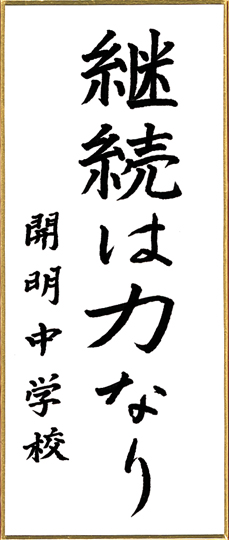 継続は力なり
開明中学校